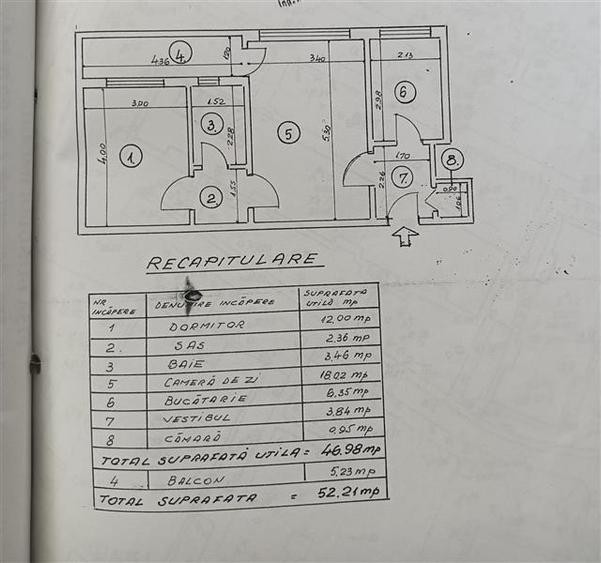 4.36
4
1.20
3.40
2.13
3.00
1.52
2.98
6
3
2.28
5
5.30
4.00
1
1.70
8.
2
1.55
2.26
7
0.90
1.06
RECAPITULARE
NR. INCĂPERE DENUMIRE INCĂPERE SUPRAFATA UTILĂ mp
1 DORMITOR 12,00 mp
2. SAS 2,36 mp
3 BAIE 3,46 mp
5 CAMERĂ DE ZI 18,02 mp
6 BUCĂTARIE 6,35 mp
7 VESTIBUL 3,84 mp
8 CĂMARĂ 0,95 mp
TOTAL SUPRAFATĂ UTILĂ = 46.98 mp
4 BALCON 5,23 mp
TOTAL SUPRAFATA = 52.21 mp